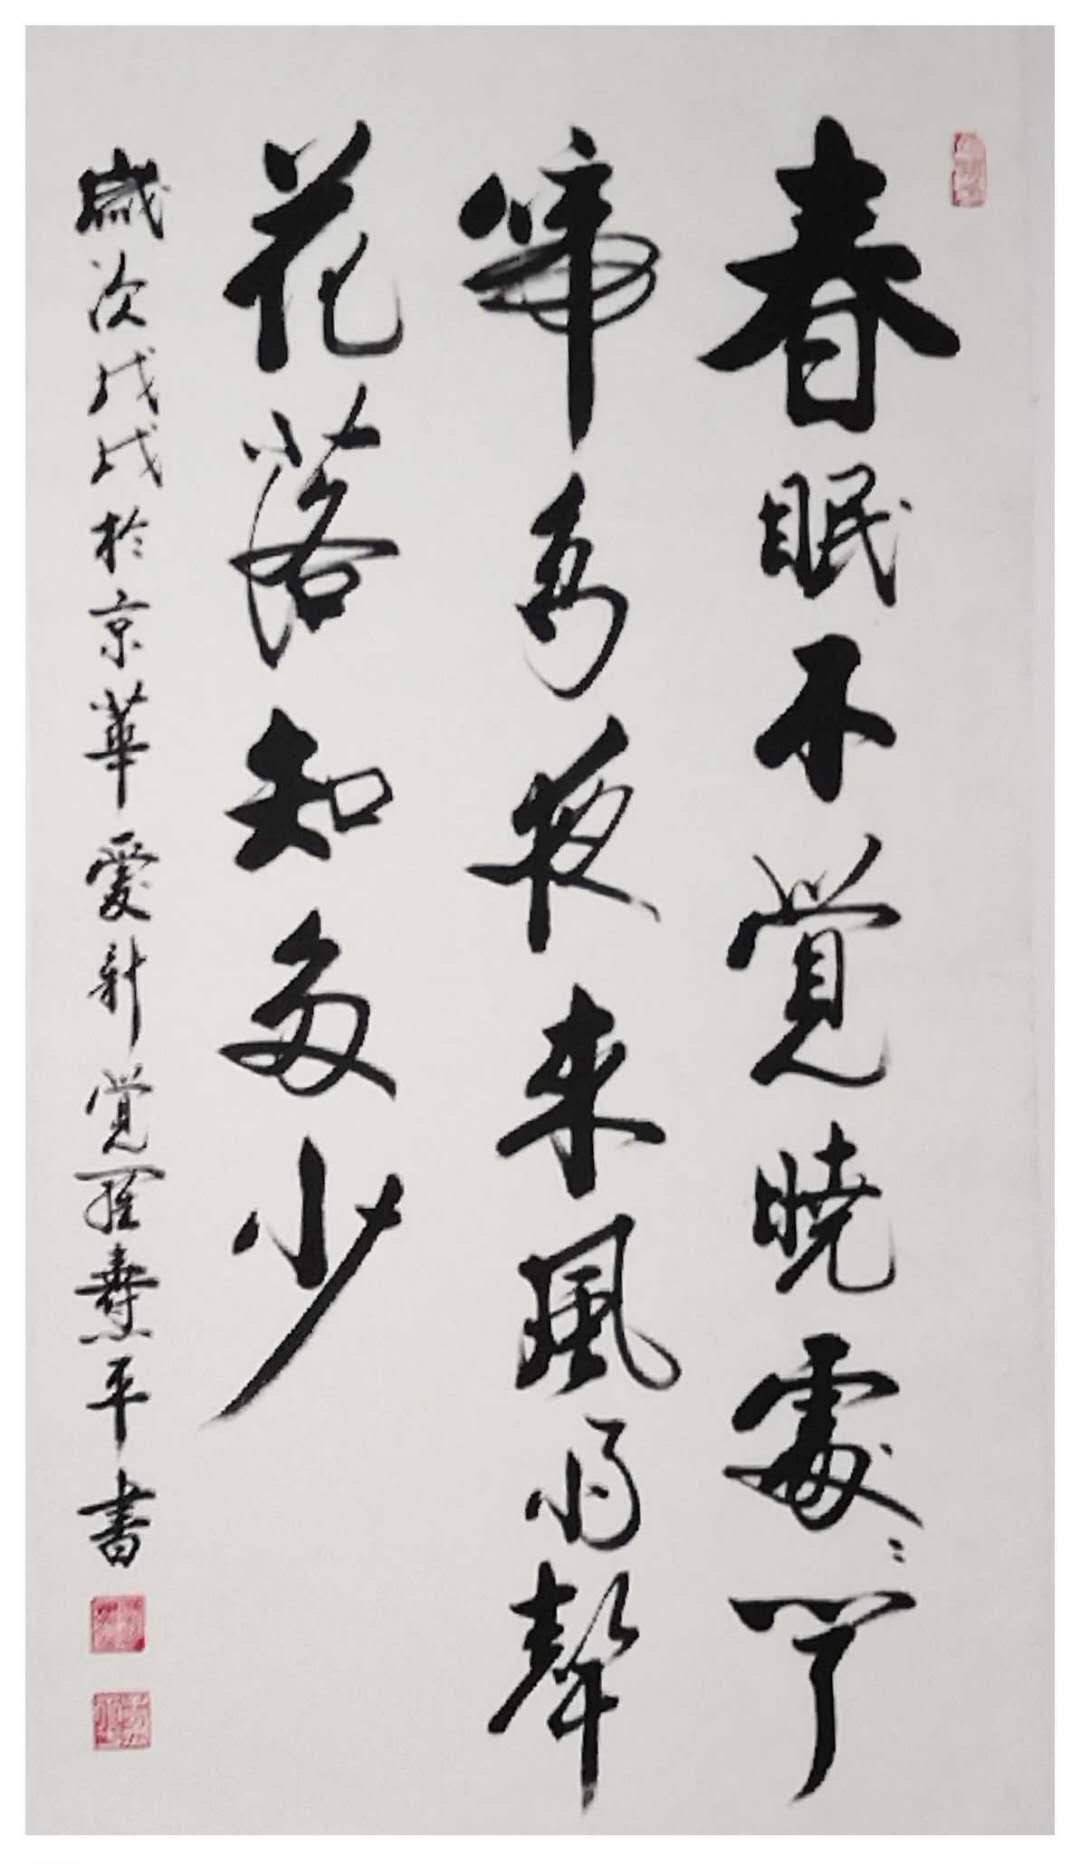 春眠不覺曉處〻聞
啼鳥夜來風雨聲
花落知多少
歲次戊戌於京華愛新覺羅燾平書